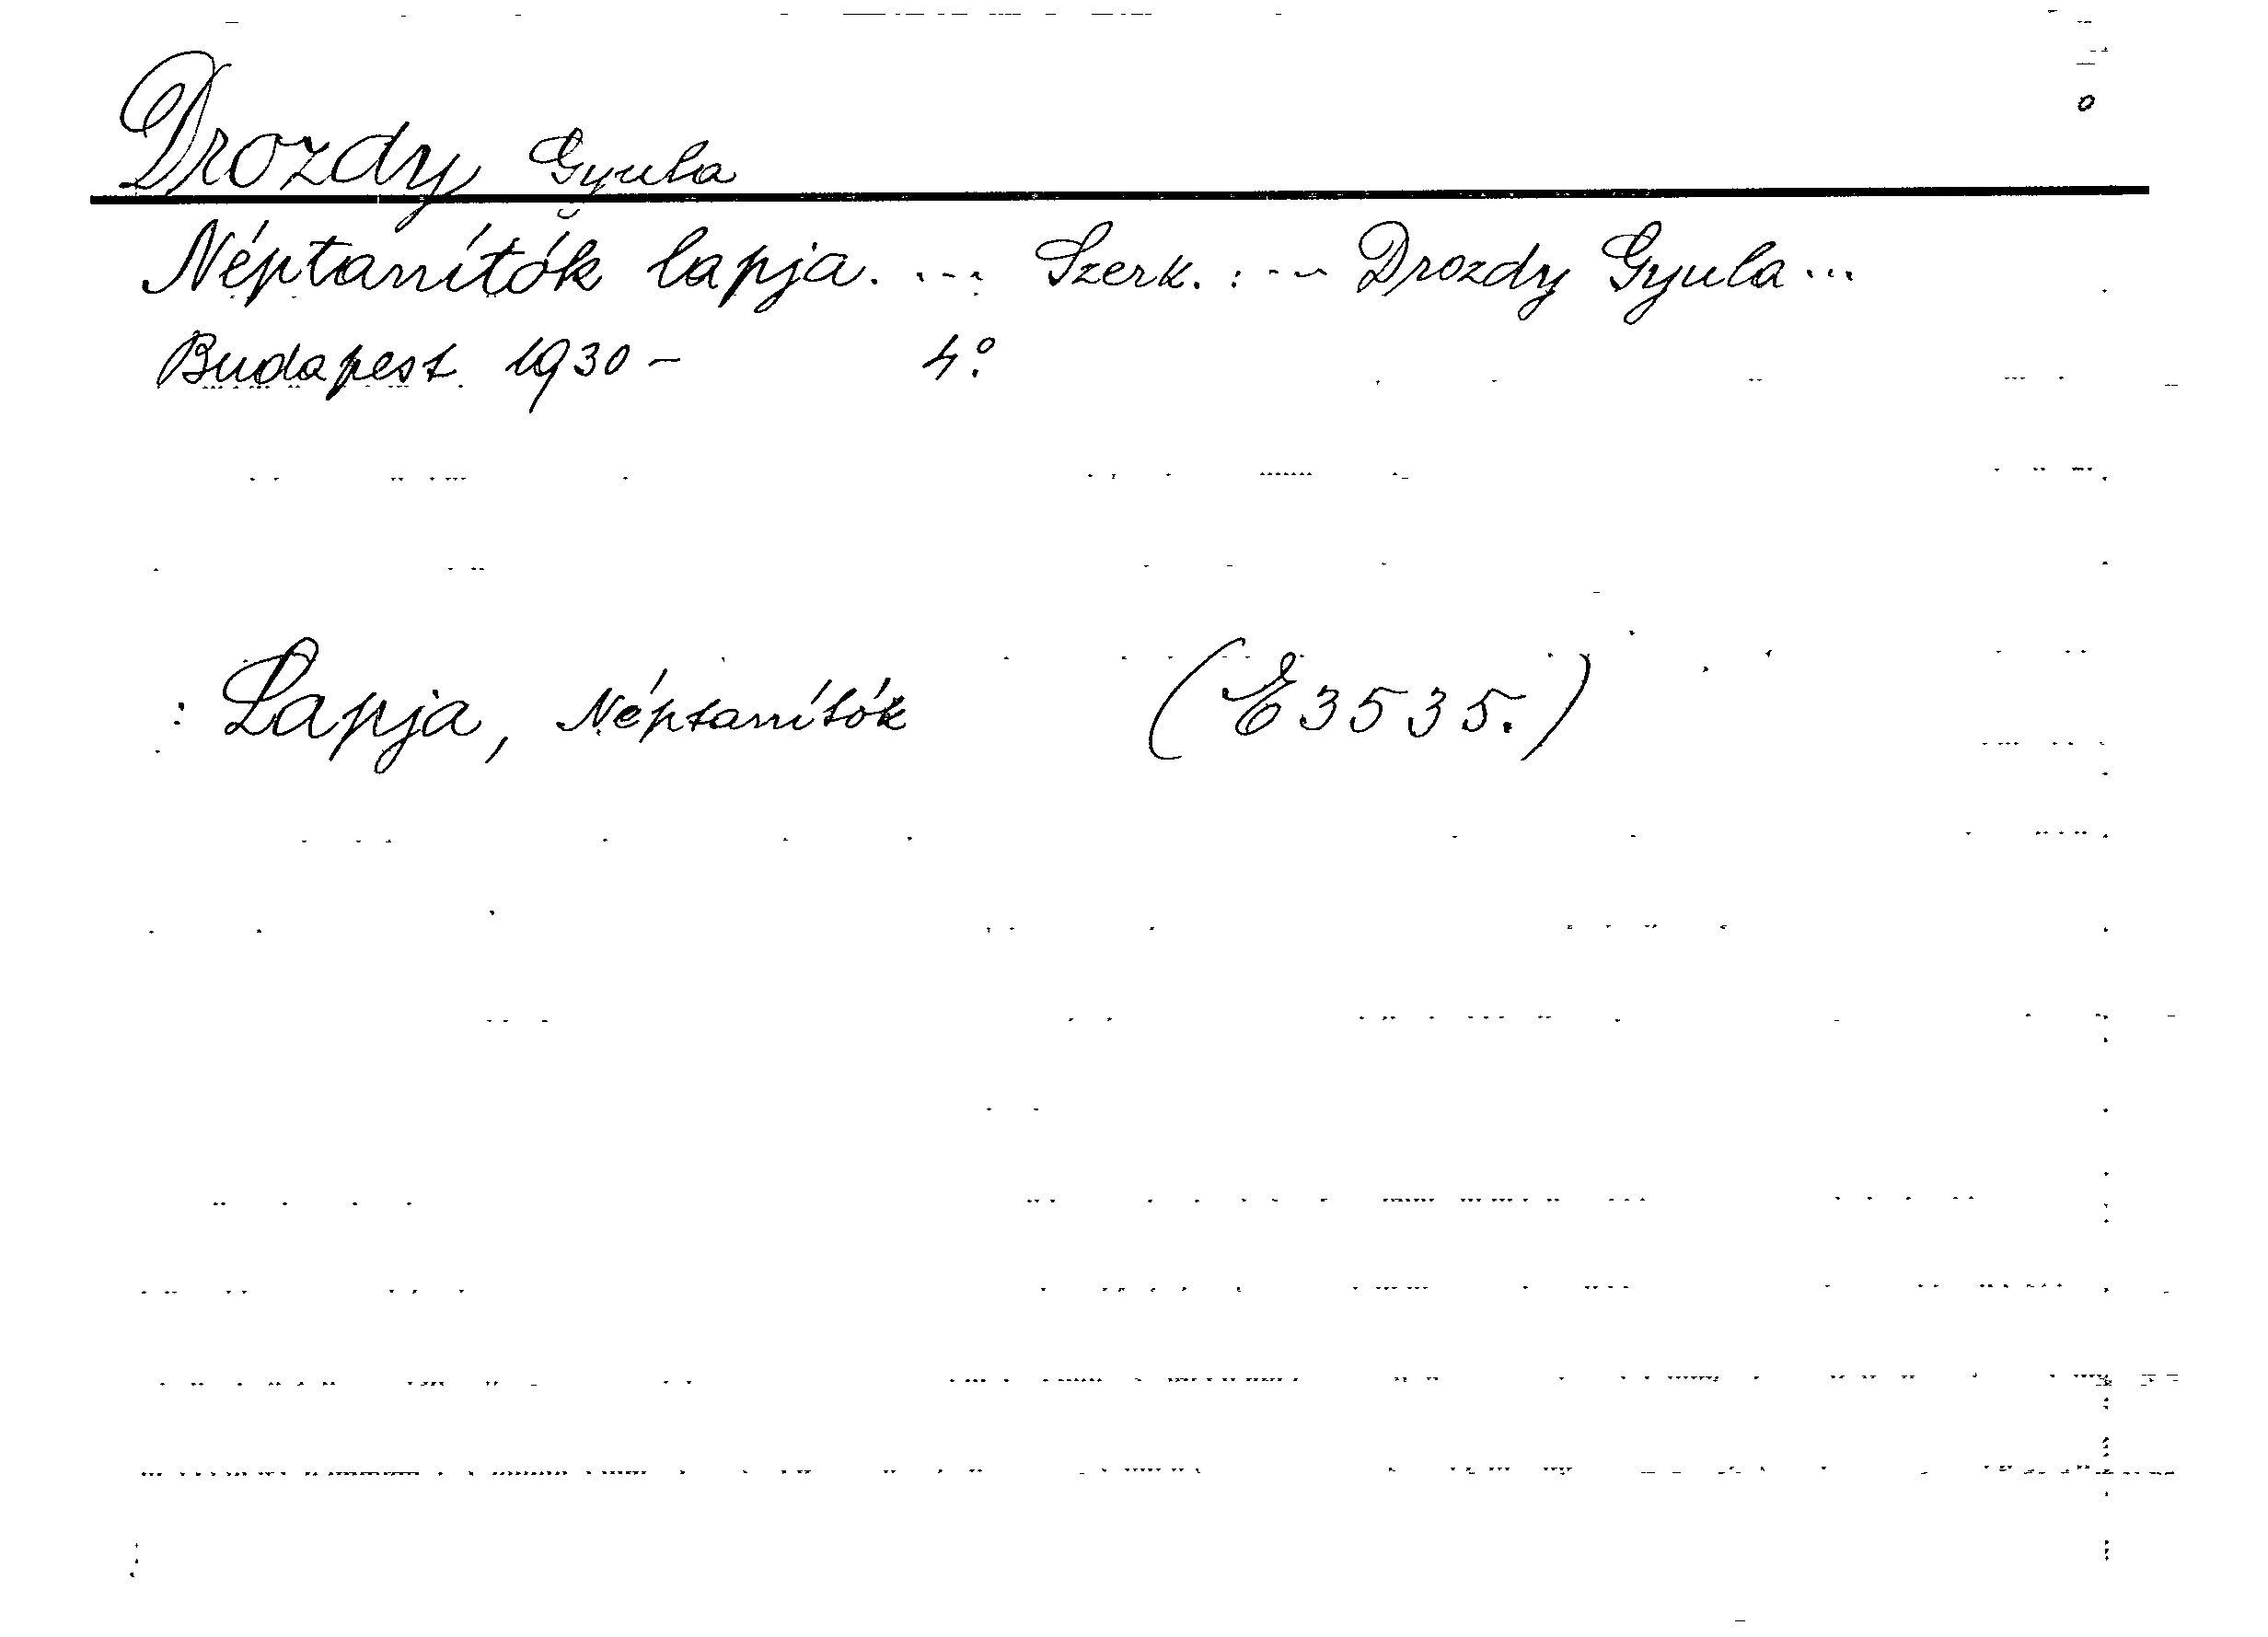 Drozdy Gyula
Néptanítók lapja. ... Szerk. : ... Drozdy Gyula ...
Budapest 1930- 4°.
: Lapja, Néptanítók (E 3535.)